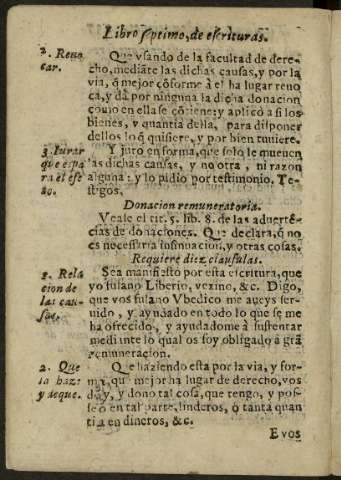 Libro septimo, de escrituras.
2. Reuo
car.
Que vsando de la facultad de dere-
cho, mediãte las dichas causas, y por la
via, q̃ mejor cõforme à el ha lugar reuo
ca, y dà por ninguna la dicha donacion
como en ella se cõtiene: y aplicò a si los
bienes, y quantia della, para disponer
dellos lo q̃ quisiere, y por bien tuuiere.
3. Iurar
que es pa
ra el efe
Y jurò en forma, que solo le mueuen
las dichas causas, y no otra, ni razon
alguna: y lo pidio por testimonio. Te-
stigos.
Donacion remuneratoria.
Veale el tit. 5. lib. 8. de las aduertẽ-
cias de donaciones. Que declara, q̃ no
es necessaria insinuacion, y otras cosas.
Requiere diez clausulas.
1. Rela
cion de
las cau-
sas.
Sea manifiesto por esta escritura, que
yo fulano Liberio, vezino, &c. Digo,
que vos fulano Vbedico me aueys ser-
uido, y ayudado en todo lo que se me
ha ofrecido, y ayudadome à sustentar
mediante lo qual os soy obligado à grã
remuneracion.
2. Que
la haze
y de que.
Que haziendo esta por la via, y for-
ma, que mejor ha lugar de derecho, vos
doy, y dono tal cosa, que tengo, y pos-
seo en tal parte, linderos, ò tanta quan
tia en dineros, &c.
E vos